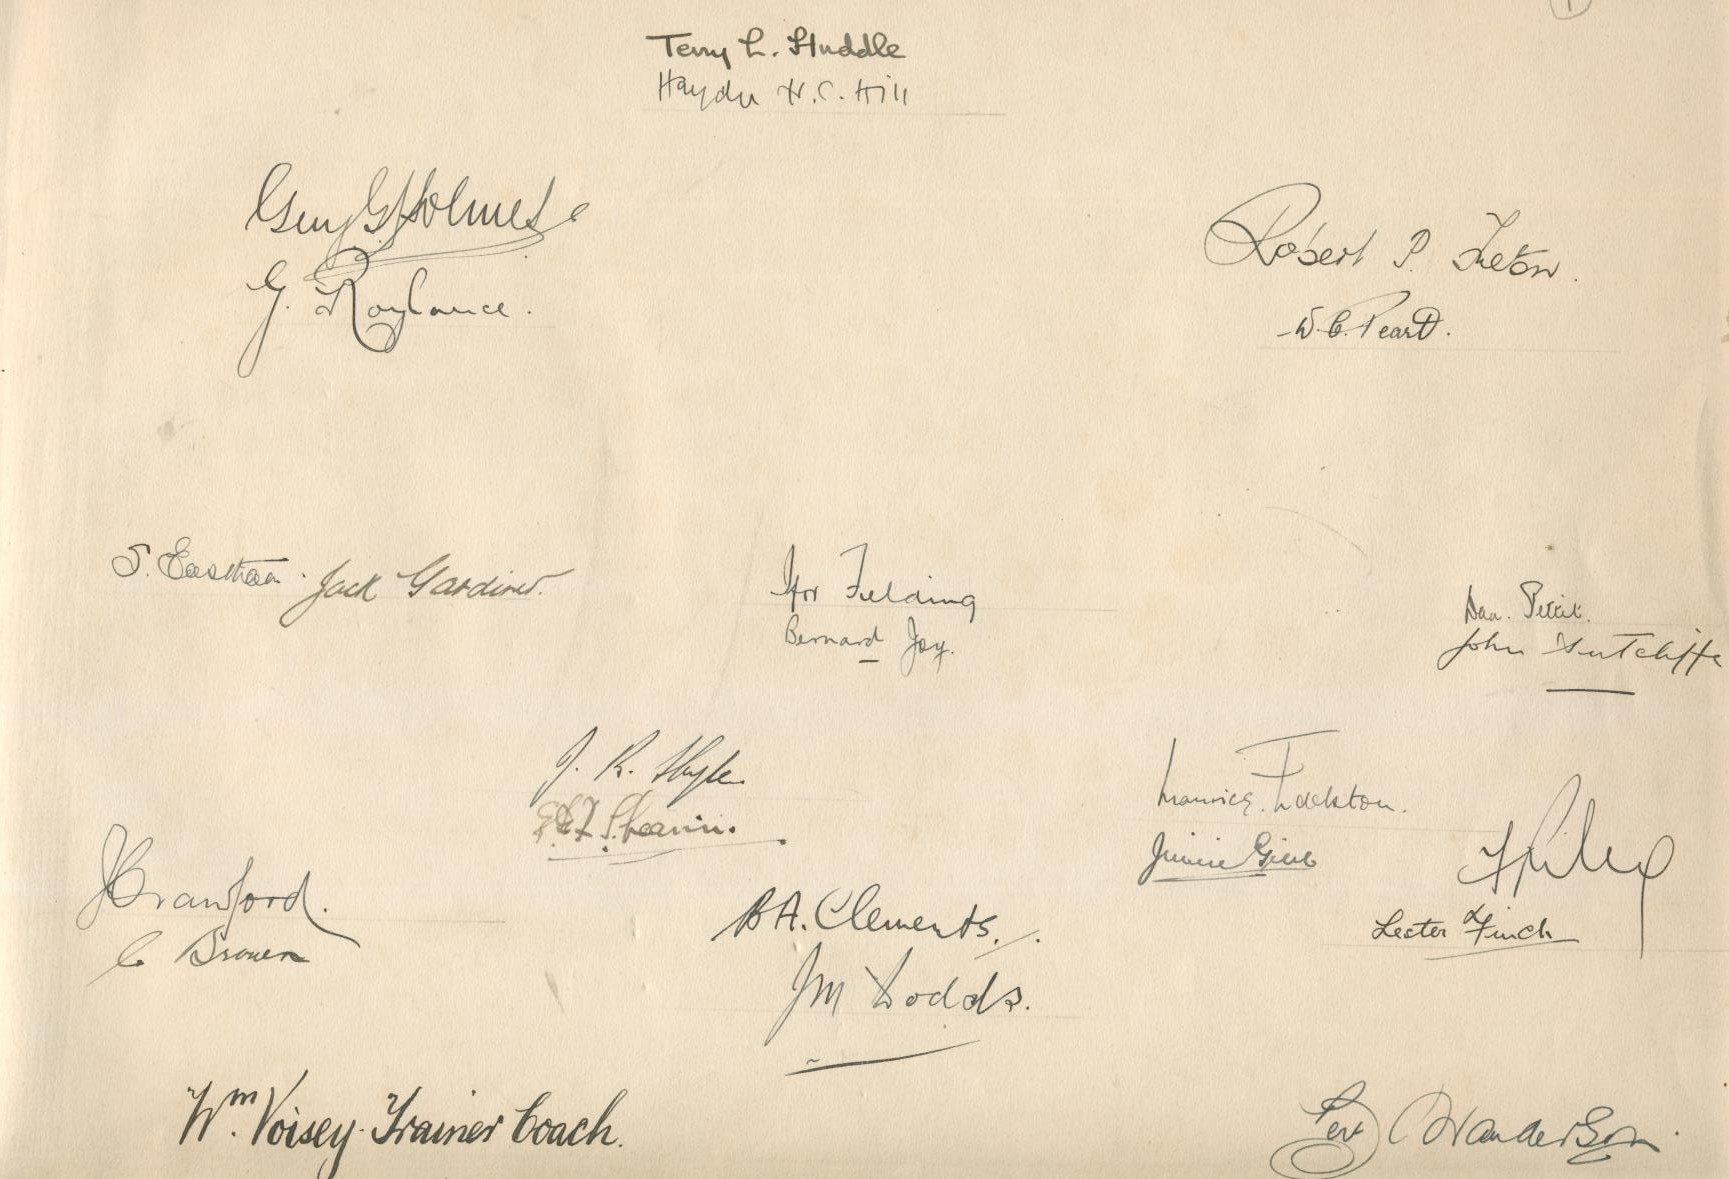 1
Terry L. Huddle
Haydn H. C. Hill
Guy G. Holmes
G. Roylance.
Robert P. Fulton.
W. C. Peart.
S. Eastham.
Jack Gardiner.
Ifor Fielding
Bernard Joy.
Dan. Pettit.
John Sutcliffe
J. R. Kyle
E. D. R. Shearer.
Maurice Edelston.
Jimmie Gibb
F Riley
Lester Finch
J Crawford.
C Brown
B A. Clements.
JM Dodds.
Wm. Voisey. Trainer Coach.